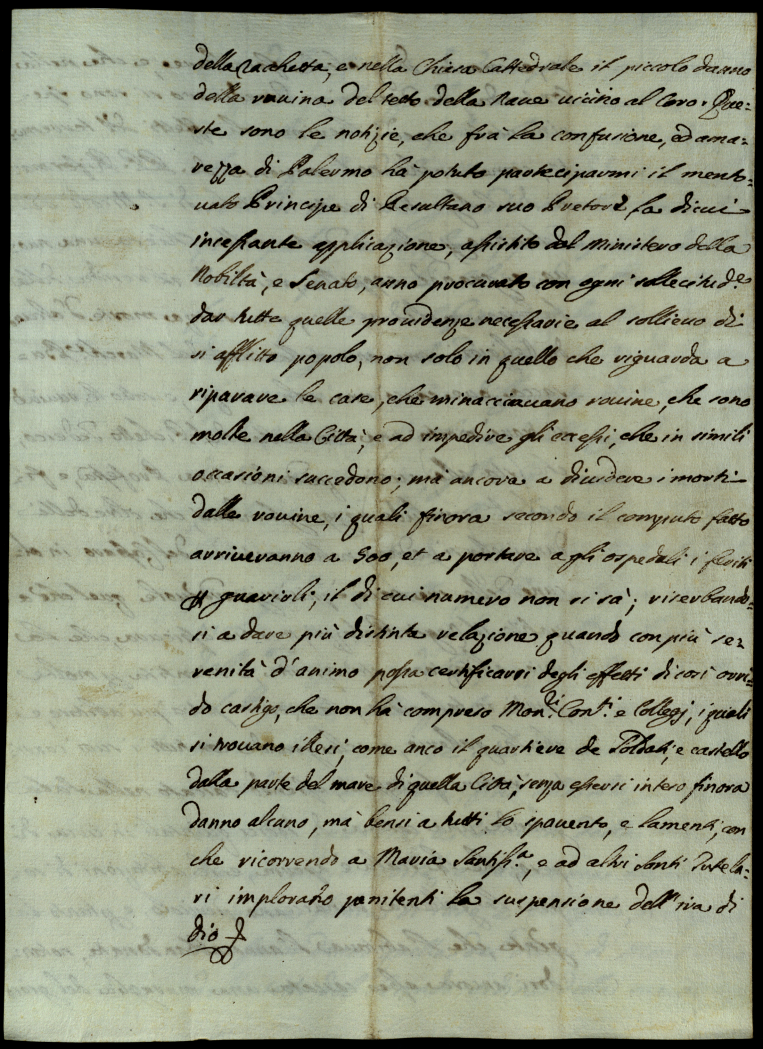 della Racchetta, e nella Chiesa Cattedrale il piccolo danno
della rouina del tetto della Naue uicino al Coro. Que=
ste sono le notizie, che frà la confusione, ed ama=
rezza di Palermo hà potuto parteciparmi il mento=
uato Principe di Resultano suo Pretore, la di cui
incessante applicazione, assistito dal Ministero della
Nobiltà, e Senato, anno procurato con ogni sollecitud.e
dar tutte quelle prouidenze necessarie al sollieuo di
si afflitto popolo, non solo in quello che riguarda a
riparare le case, che minacciauano rouine, che sono
molte nella Città, e ad impedire gli eccessi, che in simili
occasioni succedono; mà ancora a diuidere i morti
dalle rouine, i quali finora secondo il computo fatto
arriueranno a 500, et a portare agli ospedali i feriti
guarirli, il di cui numero non si sà; riserbando=
si a dare più distinta relazione quando con più se=
renità d'animo possa certificarsi degli effetti di così orri=
do castigo, che non hà compreso Mon.ri Con.ti e Collegj, i quali
si trouano illesi, come anco il quartiere de Soldati, e castello
dalla parte del mare di quella Città, senza essersi inteso finora
danno alcuno, mà bensi a tutti lo spauento, e lamenti, con
che ricorrendo a Maria Santiss.a, e ad altri Santi Tutela=
ri implorano penitenti la suspensione dell'ira di
Dio